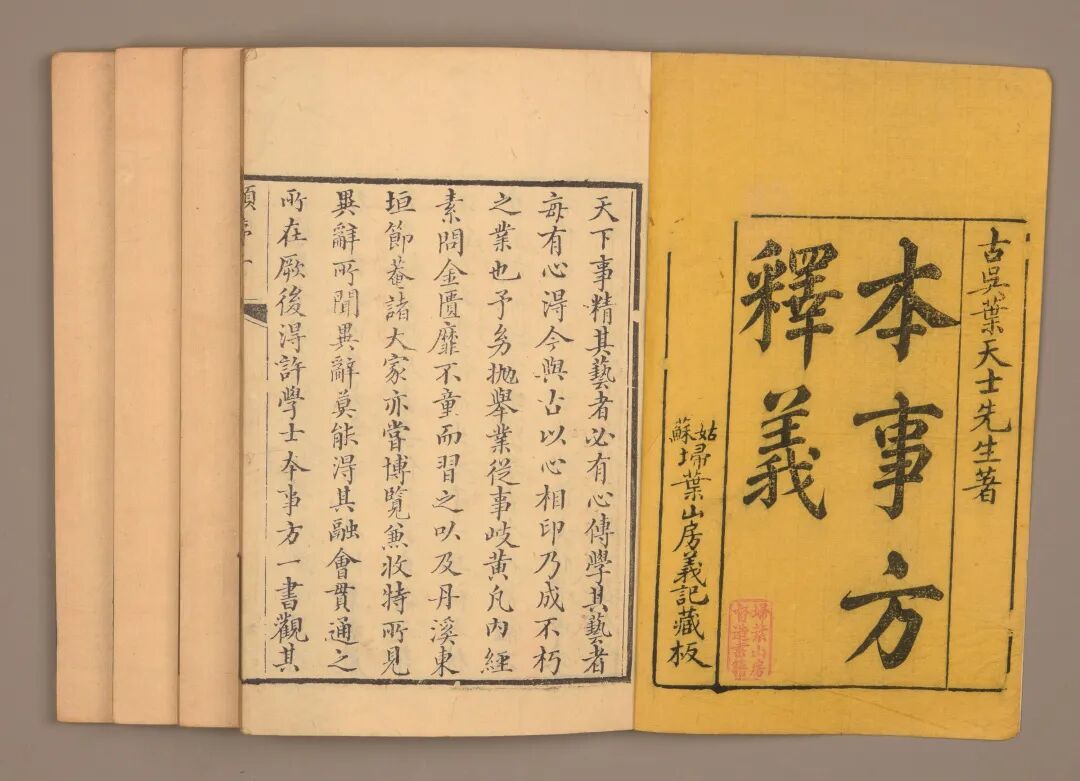 古吳葉天士先生著
本事方
釋義
姑蘇埽葉山房義記藏板
埽葉山房
督造書籍
天下事精其藝者必有心傳學其藝者
每有心得今與古以心相印乃成不朽
之業也予幼拋舉業從事岐黃凡內經
素問金匱靡不童而習之以及丹溪東
垣節菴諸大家亦嘗博覽兼收特所見
異辭所聞異辭莫能得其融會貫通之
所在厥後得許學士本事方一書觀其